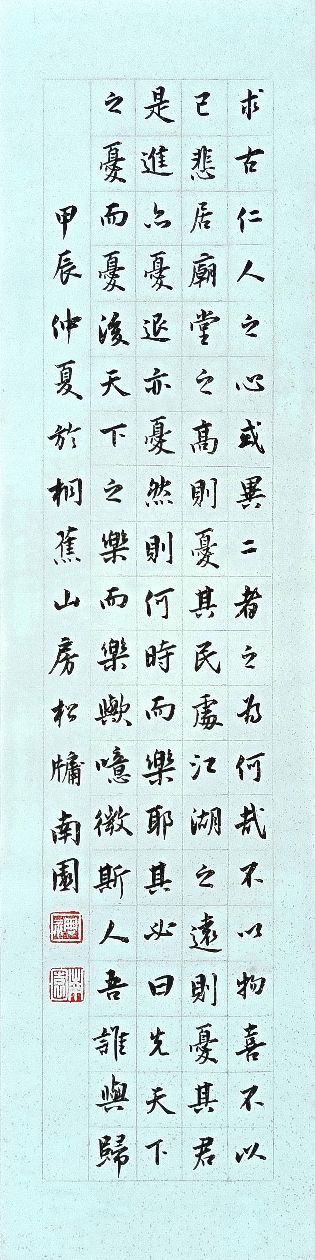 求古仁人之心或異二者之為何哉不以物喜不以
己悲居廟堂之高則憂其民處江湖之遠則憂其君
是進亦憂退亦憂然則何時而樂耶其必曰先天下
之憂而憂後天下之樂而樂歟噫微斯人吾誰與歸
甲辰仲夏於桐蕉山房松牖南園
南園